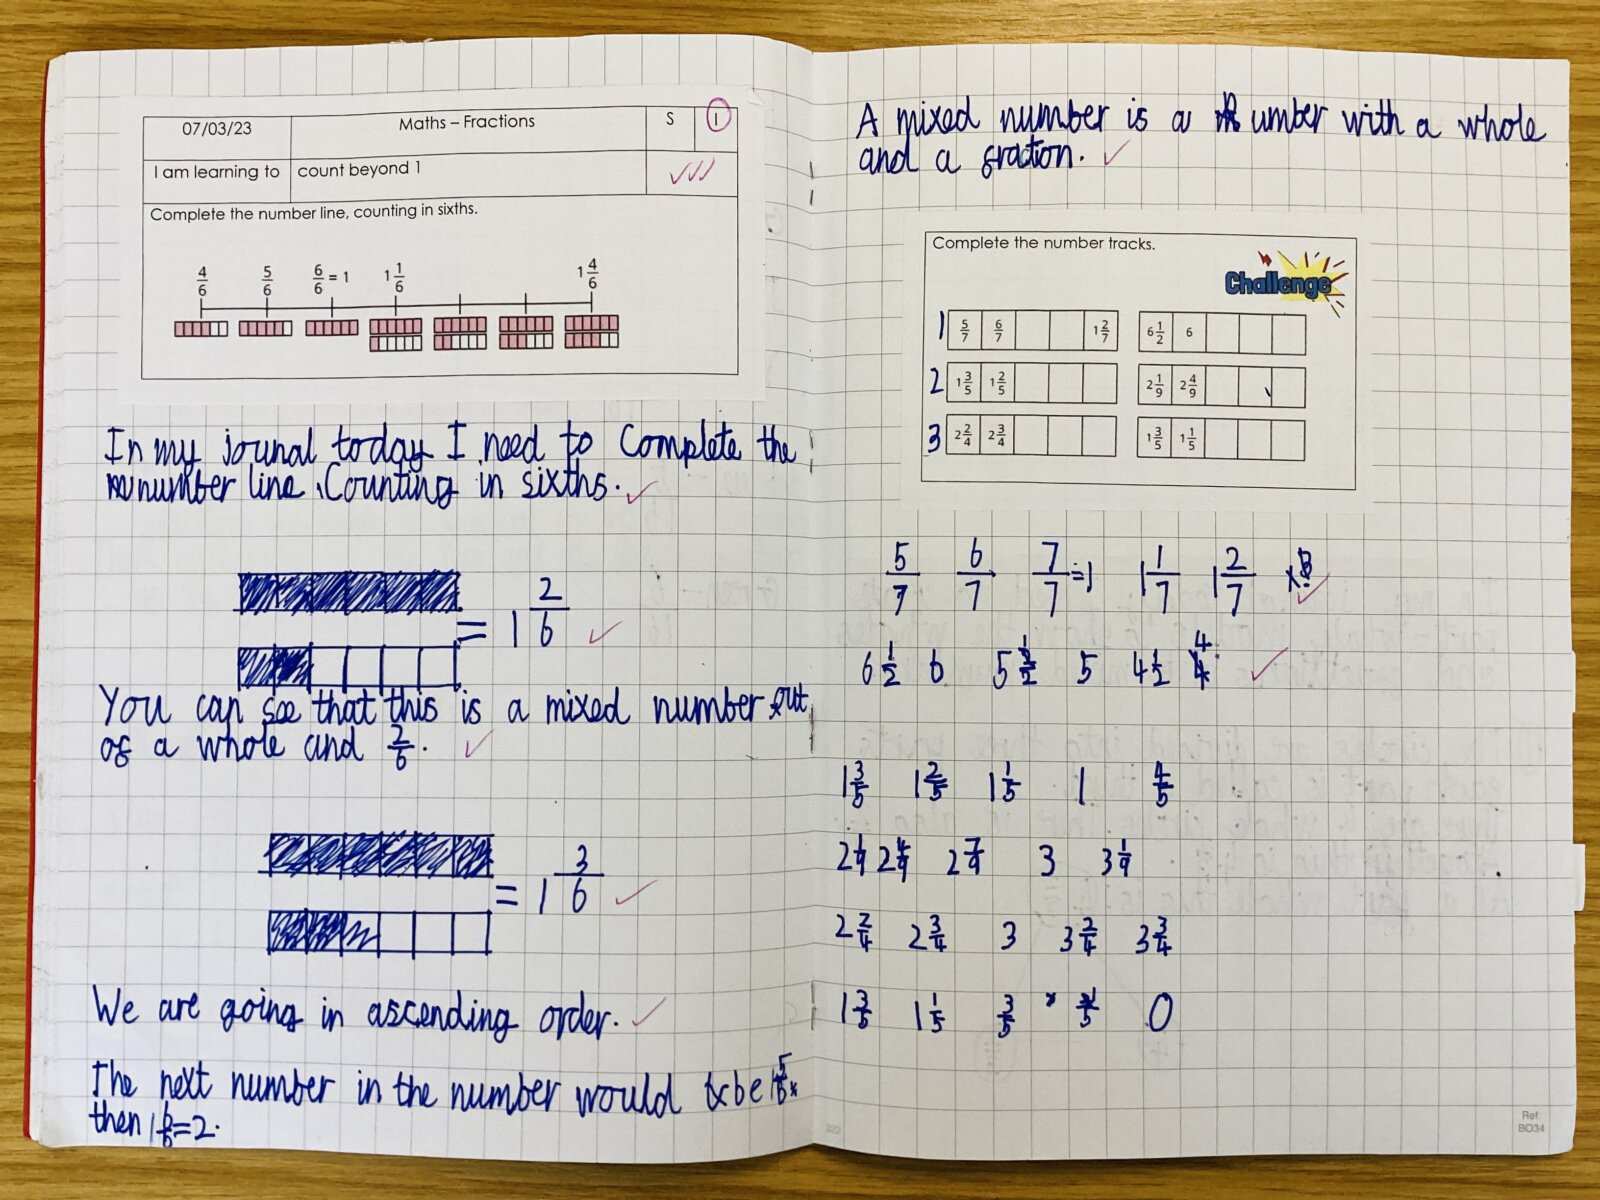 07/03/23 Maths – Fractions S I
I am learning to count beyond 1
Complete the number line, counting in sixths.
4/6 5/6 6/6 = 1 1 1/6 1 4/6
In my jounal today I need to Complete the
number line. Counting in sixths.
= 1 2/6
You can see that this is a mixed number out
of a whole and 2/6.
= 1 3/6
We are going in ascending order.
The next number in the number would be 1 5/6
then 1 6/6 = 2.
322
A mixed number is a number with a whole
and a fraction.
Complete the number tracks.
Challenge
1 5/7 6/7 1 2/7 6 1/2 6
2 1 3/5 1 2/5 2 1/9 2 4/9
3 2 2/4 2 3/4 1 3/5 1 1/5
5/7 6/7 7/7 = 1 1 1/7 1 2/7
6 1/2 6 5 1/2 5 4 1/2 4
1 3/5 1 2/5 1 1/5 1 4/5
2 1/9 2 4/9 2 7/9 3 3 1/9
2 2/4 2 3/4 3 3 2/4 3 3/4
1 3/5 1 1/5 3/5 1/5 0
Ref:
BO34